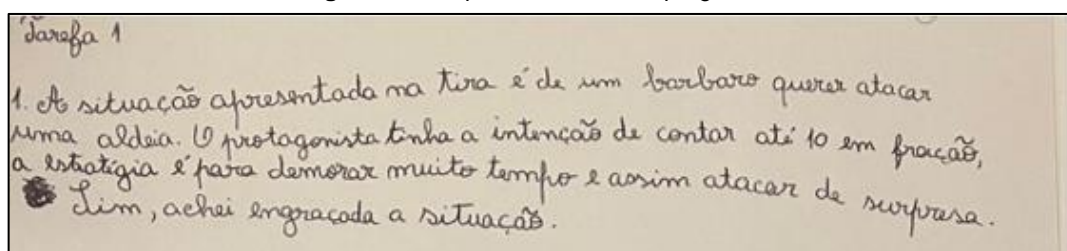 Tarefa 1
1. A situação apresentada na tira é de um barbaro querer atacar
uma aldeia. O protagonista tinha a intenção de contar até 10 em fração,
a estratigia é para demorar muito tempo e assim atacar de surpresa.
Sim, achei engraçada a situação.